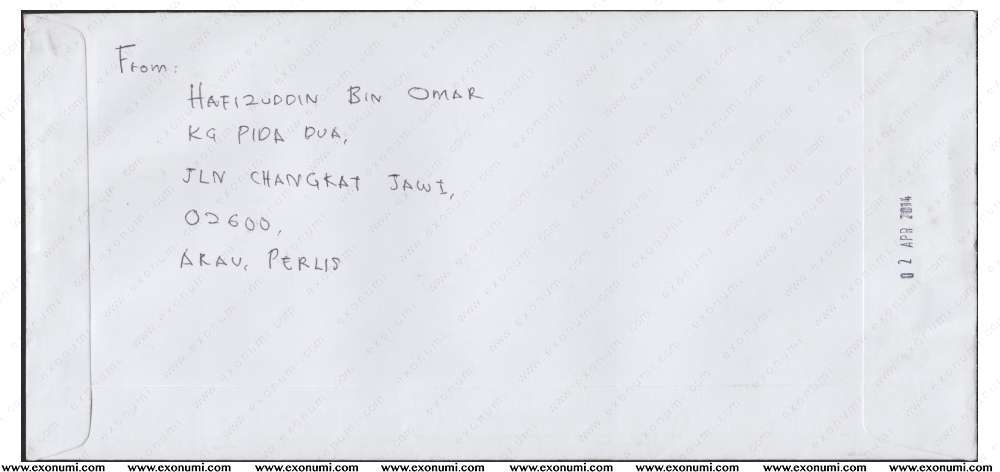 From:
HAFIZUDDIN BIN OMAR
KG PIDA DUA,
JLN CHANGKAT JAWI,
02600,
ARAU, PERLIS
02 APR 2014
www.exonumi.com www.exonumi.com www.exonumi.com www.exonumi.com www.exonumi.com www.exonumi.com www.exonumi.com www.exonumi.com